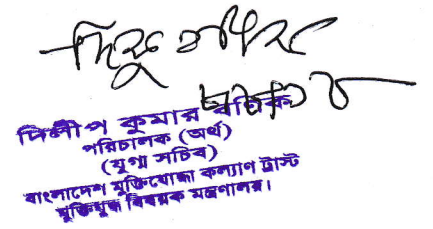 দিলীপ কুমার বণিক
পরিচালক (অর্থ)
(যুগ্ম সচিব)
বাংলাদেশ মুক্তিযোদ্ধা কল্যাণ ট্রাস্ট
মুক্তিযুদ্ধ বিষয়ক মন্ত্রণালয়।